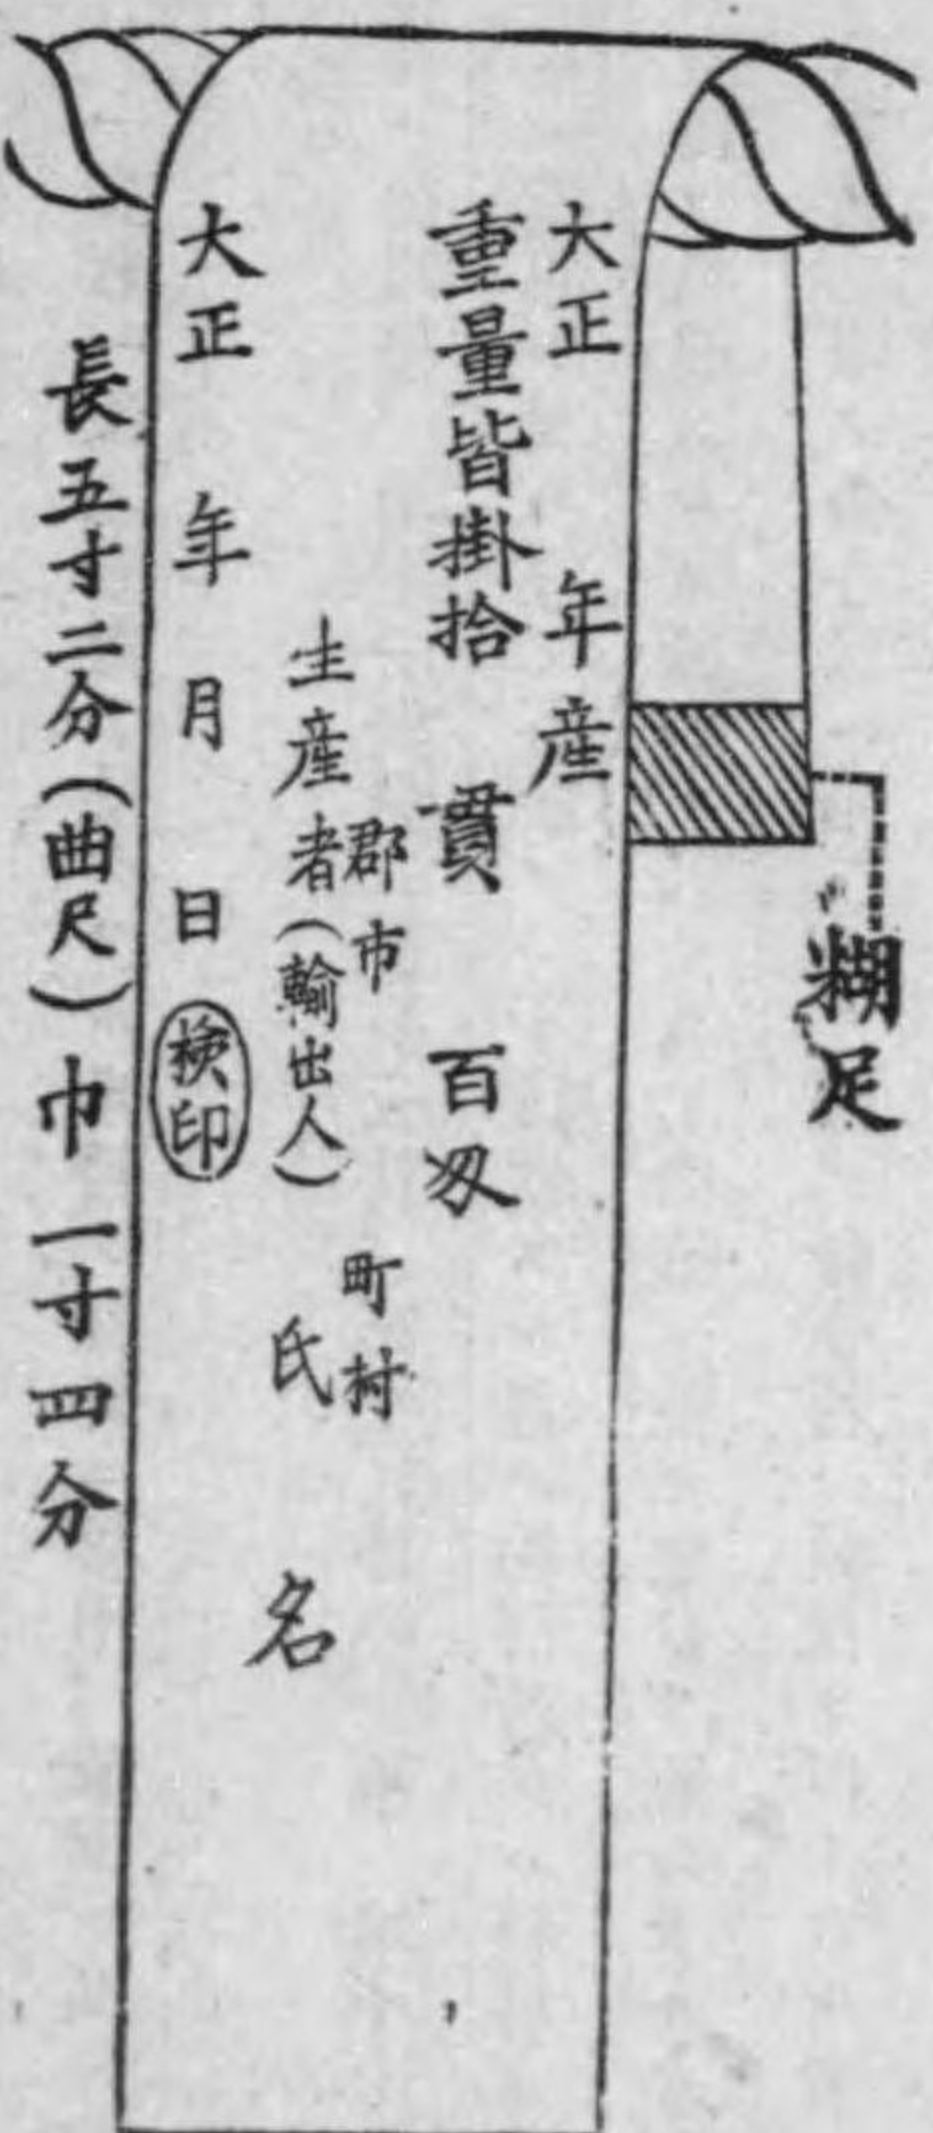 糊足
大正 年産
重量皆掛拾 貫 百匁
郡市 町村
生産者(輸出人) 氏 名
大正 年 月 日 検印
長五寸二分(曲尺)巾一寸四分